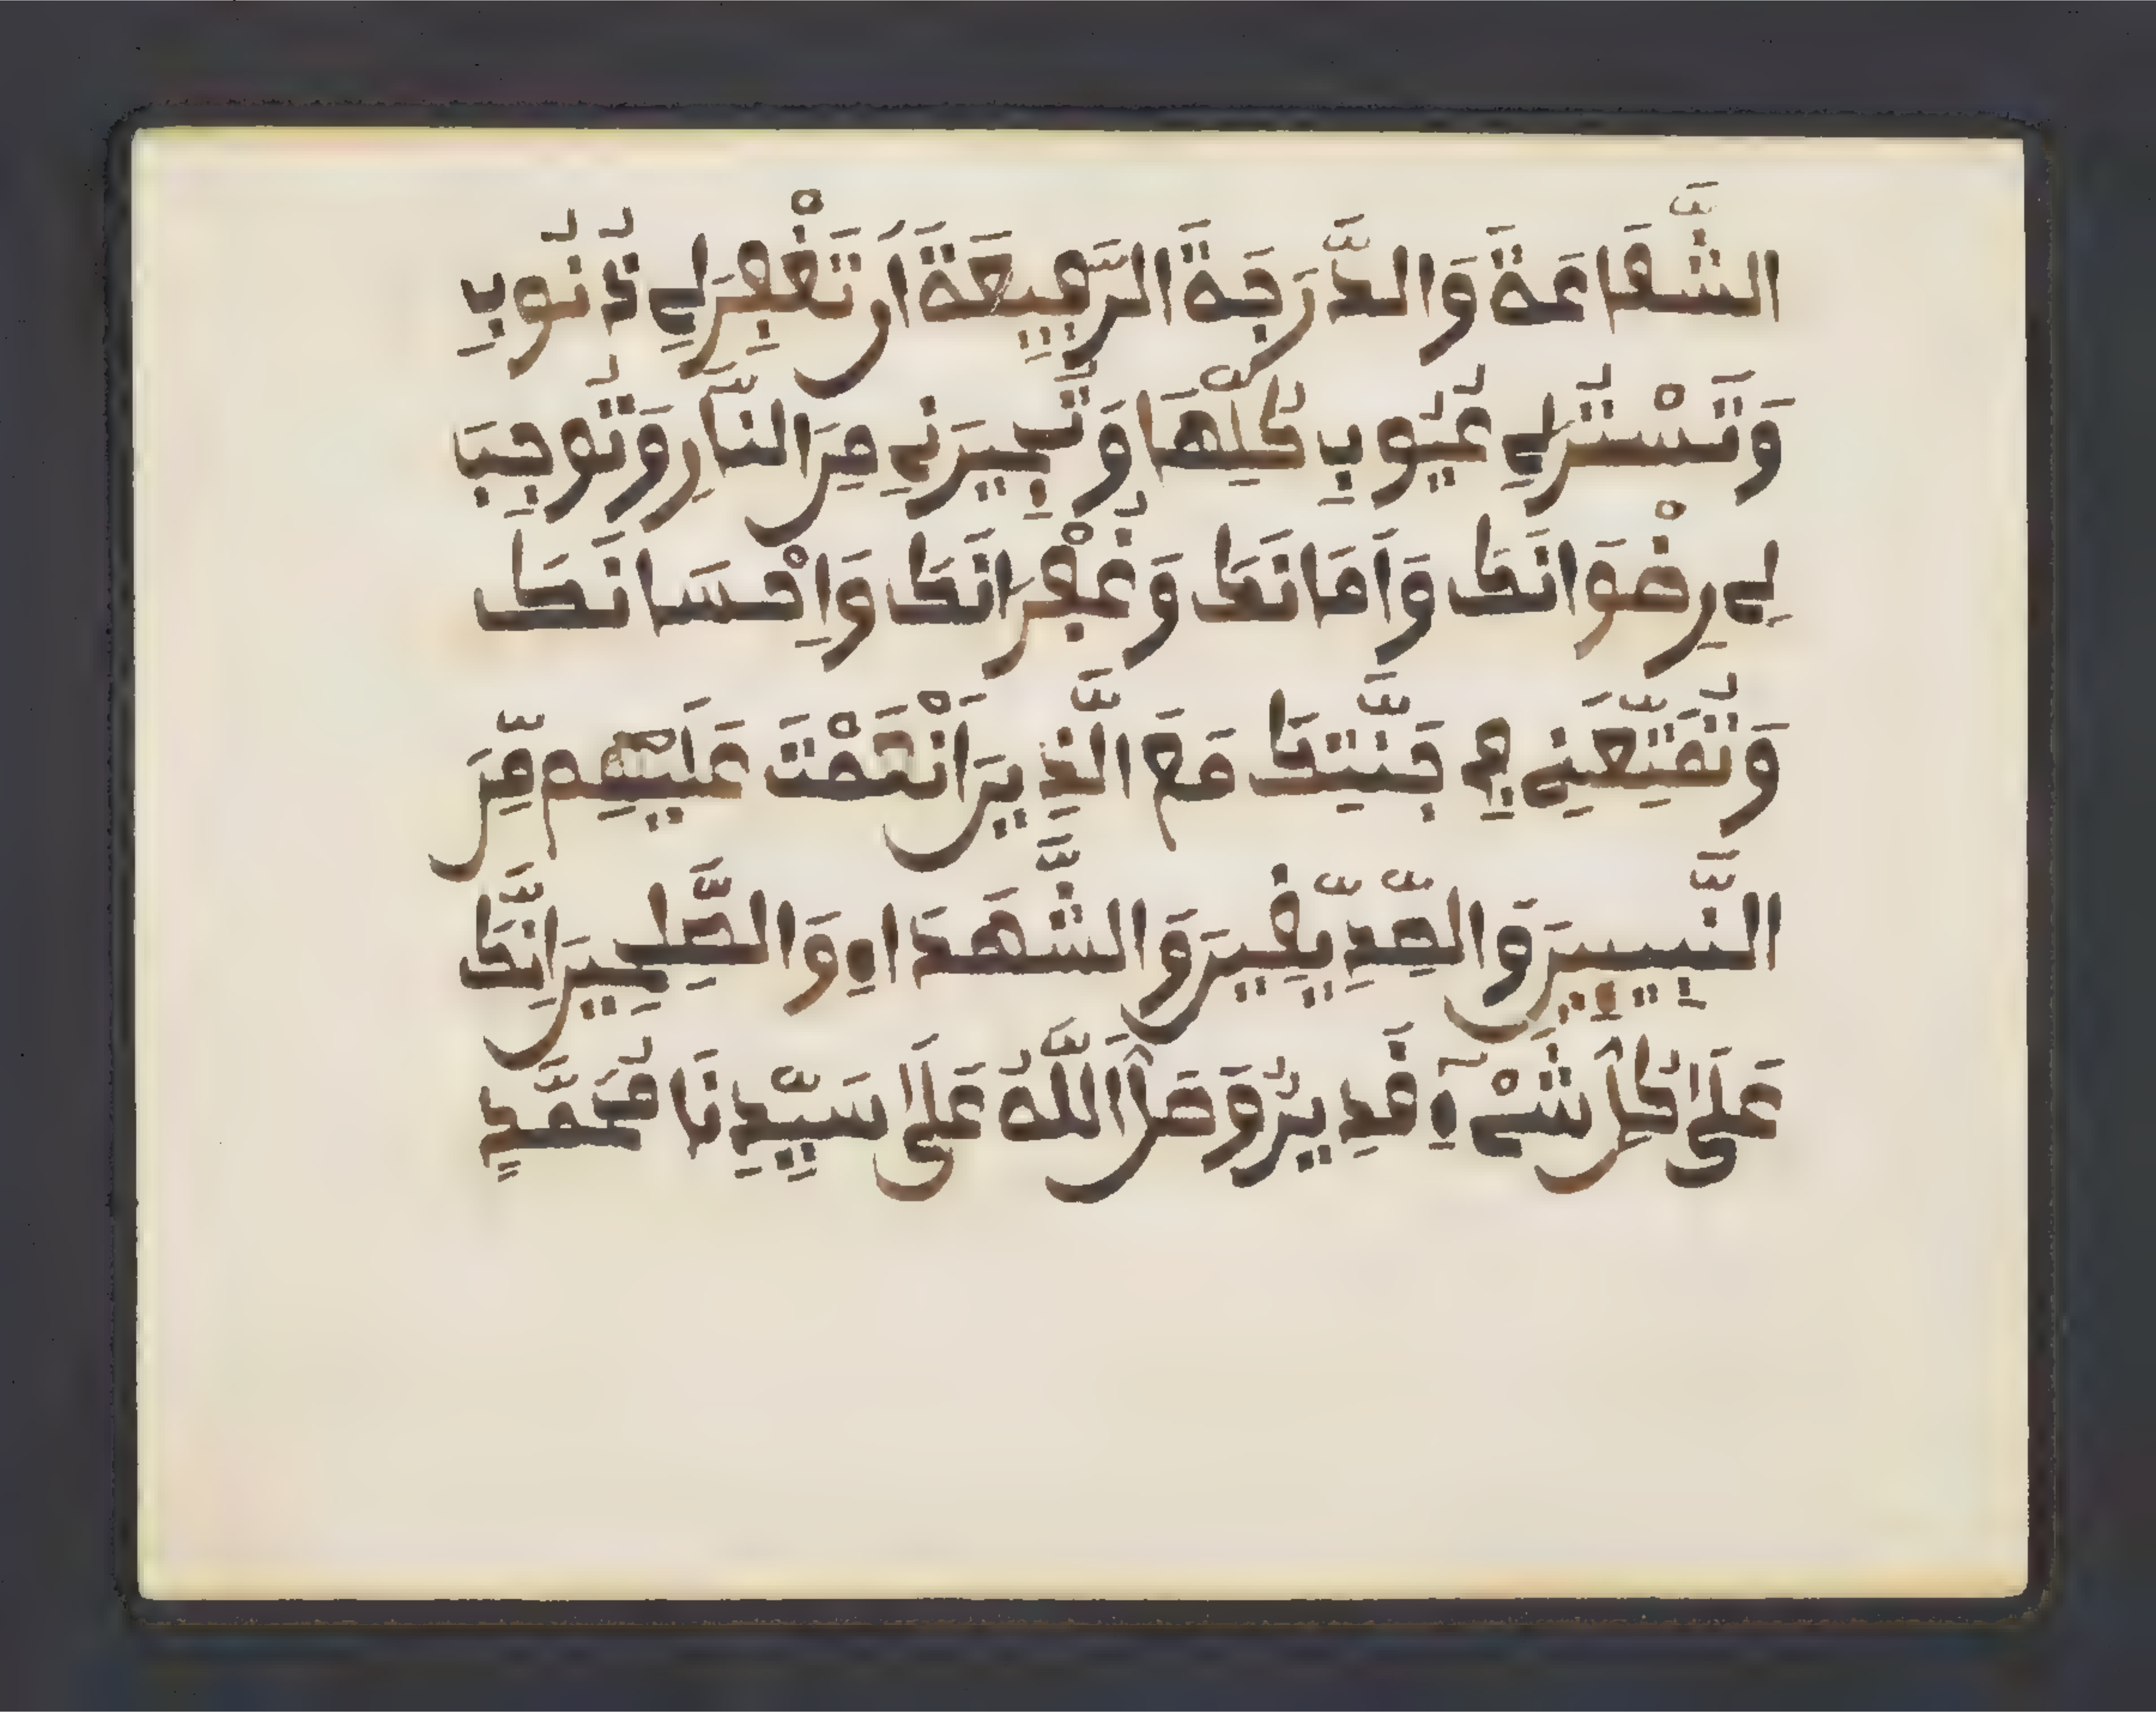 الشَّفَاعَةَ وَالدَّرَجَةَ الرَّفِيعَةَ أَن تَغْفِرَ لِے ذُنُوبِے
وَتَسْتُرَ لِے عُيُوبِے كُلِّهَا وَتُجِيرَنِے مِنَ النَّارِ وَتُوجِبَ
لِے رِضْوَانَكَ وَأَمَانَكَ وَغُفْرَانَكَ وَإِحْسَانَكَ
وَتُمَتِّعَنِے فِے جَنَّتِكَ مَعَ الَّذِينَ أَنْعَمْتَ عَلَيْهِم مِّنَ
النَّبِيـِٕينَ وَالصِّدِّيقِينَ وَالشُّهَدَاءِ وَالصَّلِحِينَ إِنَّكَ
عَلَىٰ كُلِّ شَےْءٍ قَدِيرٌ وَصَلَّى اللَّهُ عَلَىٰ سَيِّدِنَا مُحَمَّدٍ